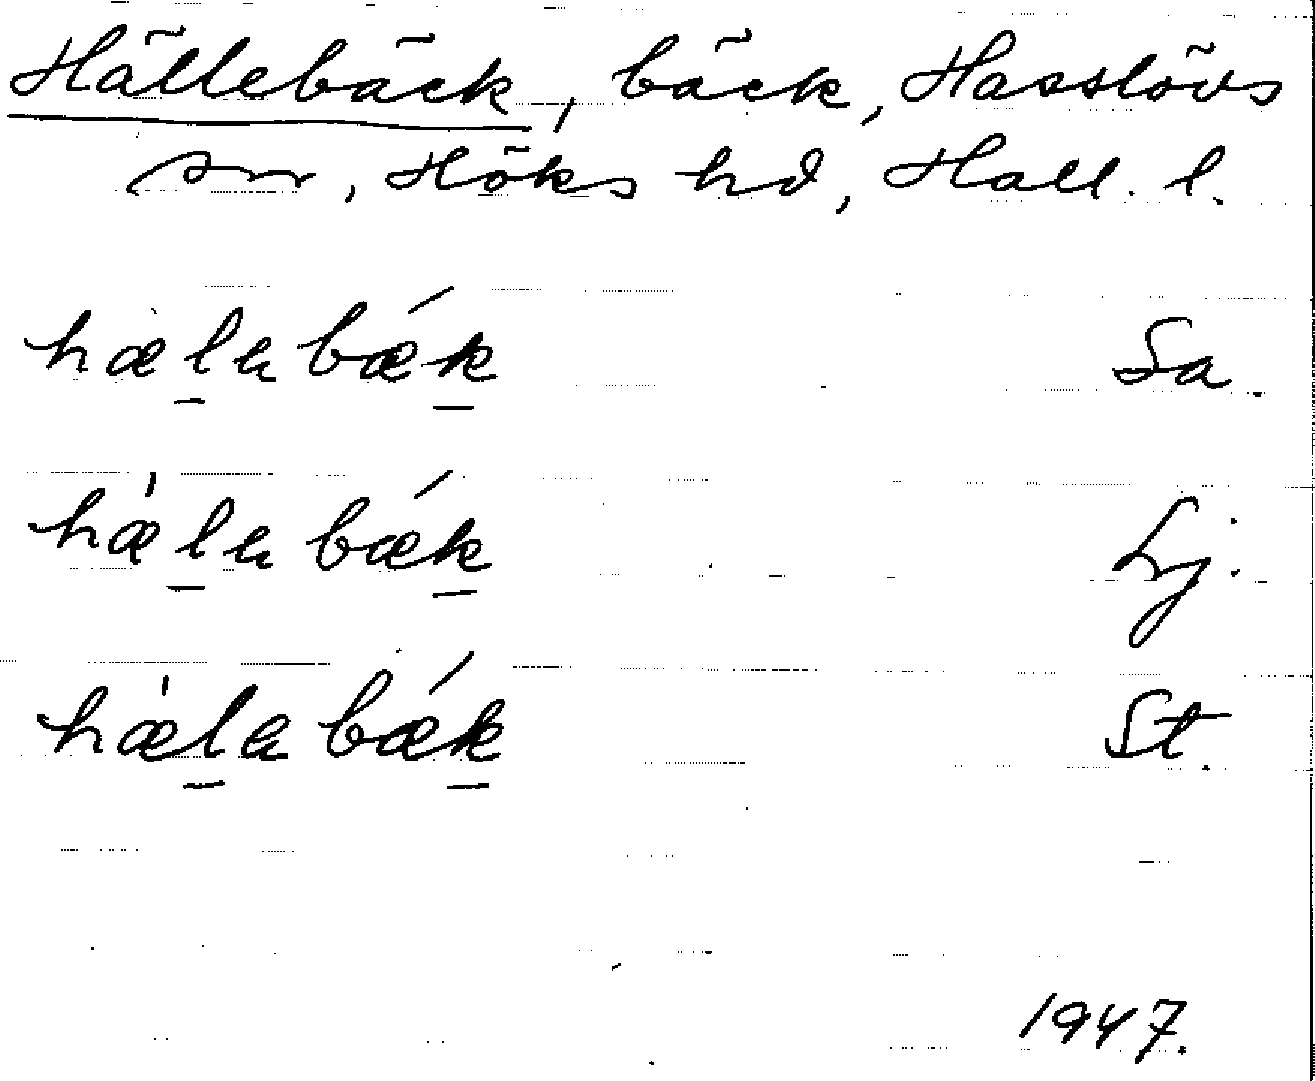 Hällebäck, bäck, Hasslövs
sn, Höks hd, Hall. l.
hælabǽk Sa.
hæ̍labǽk Lj.
hæ̍labǽk St.
1947.